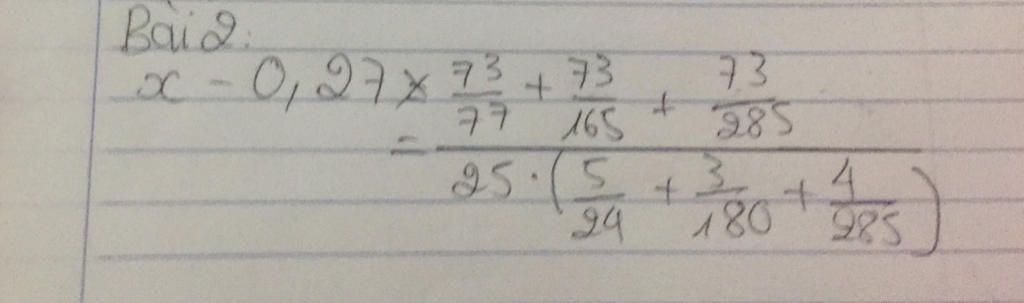 Bài 2:
x - 0,27 x 73/77 + 73/165 + 73/285
=
25 · (5/24 + 3/180 + 4/285)